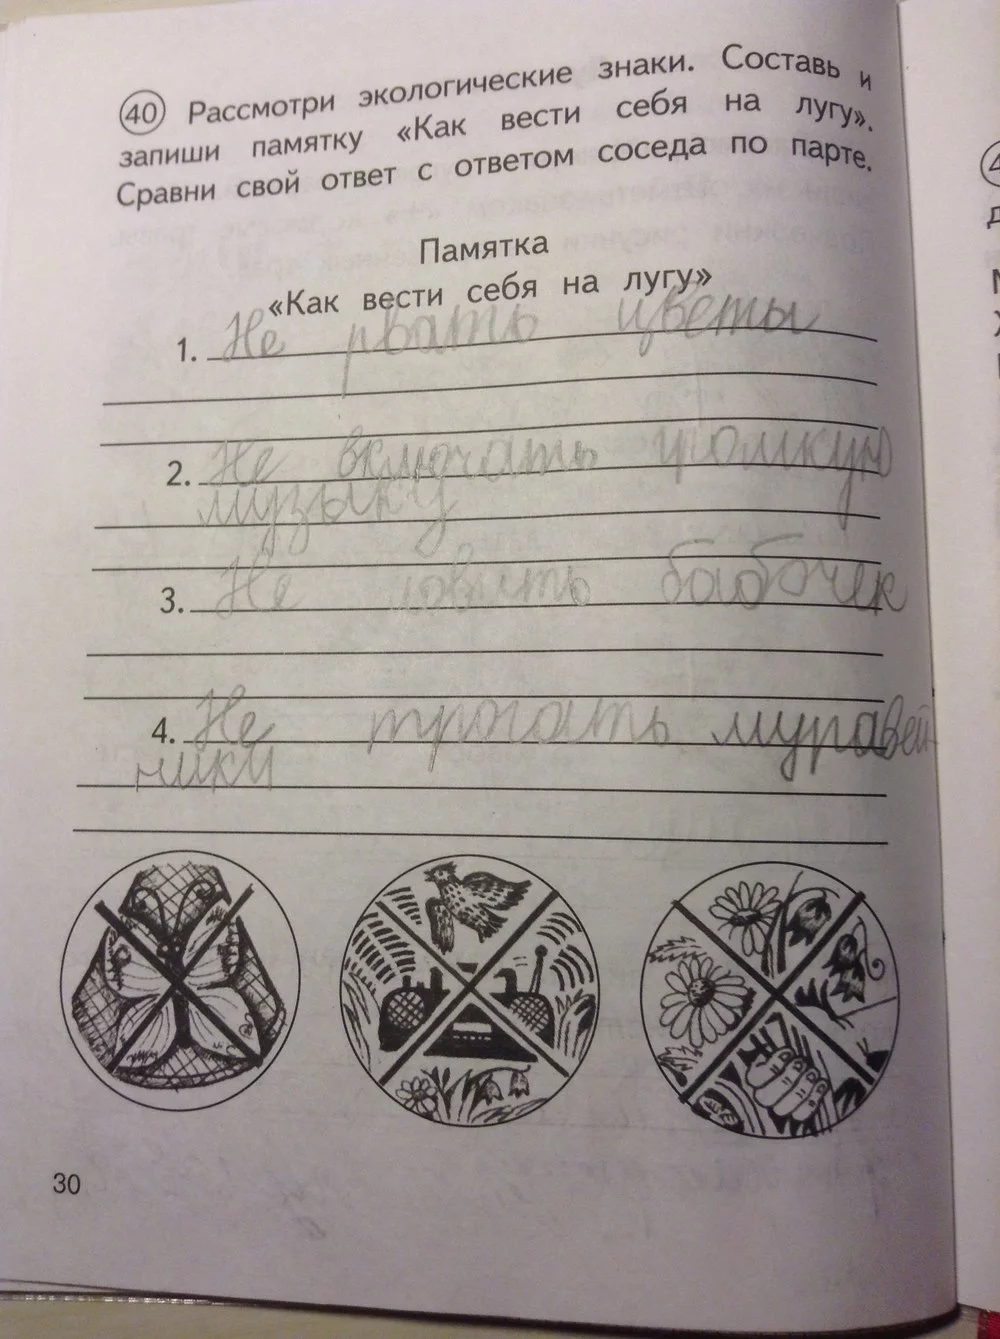 40 Рассмотри экологические знаки. Составь и
запиши памятку «Как вести себя на лугу».
Сравни свой ответ с ответом соседа по парте.
Памятка
«Как вести себя на лугу»
1. Не рвать цветы
2. Не включать громкую
музыку
3. Не ловить бабочек
4. Не трогать муравей
ники
30